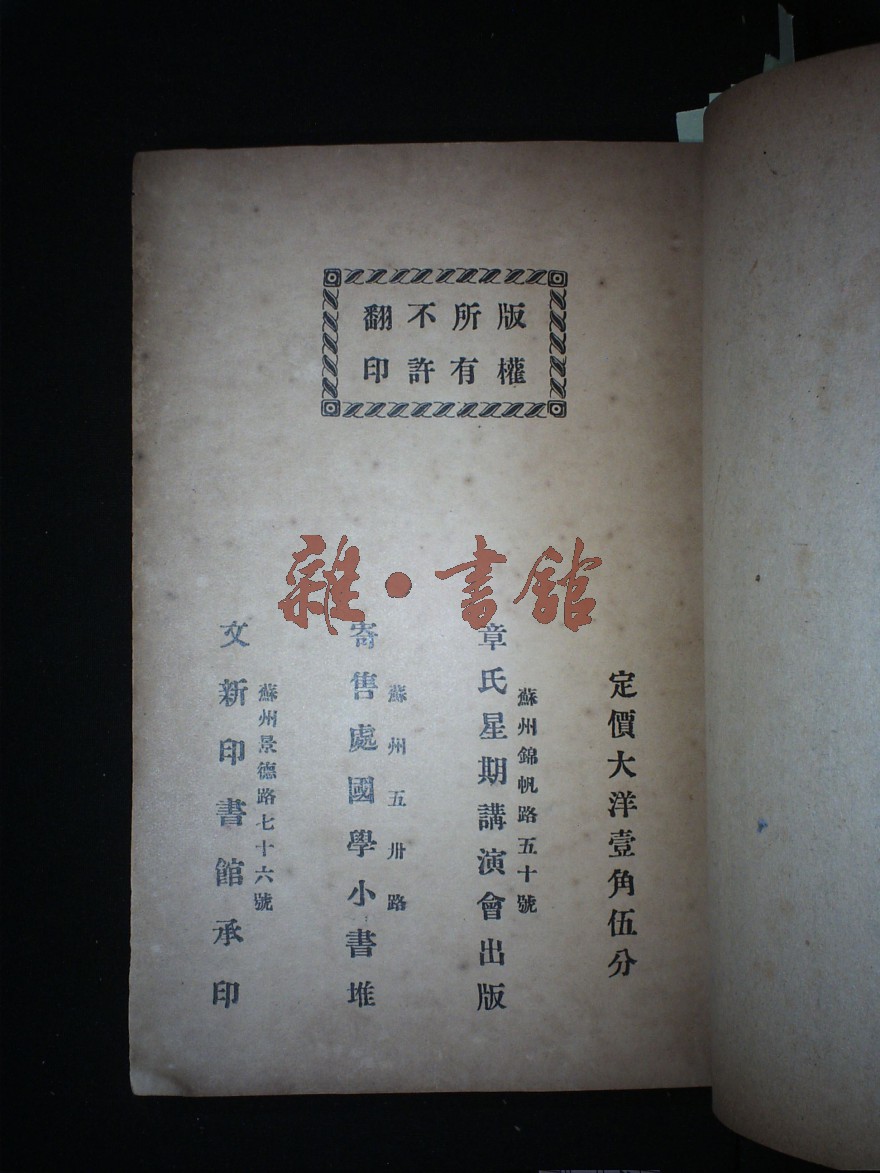 版權
所有
不許
翻印
雜·書館
定價大洋壹角伍分
蘇州錦帆路五十號
章氏星期講演會出版
蘇州五卅路
寄售處國學小書堆
蘇州景德路七十六號
文新印書館承印